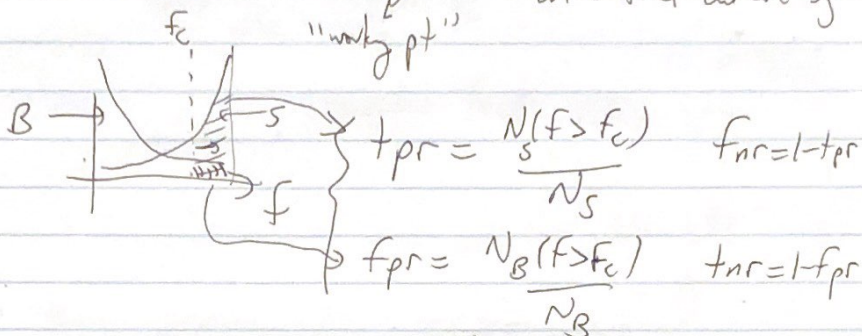 f_c
"working pt"
B
S
f
tpr = N_S(f>f_c) / N_S
fnr=1-tpr
fpr = N_B(f>f_c) / N_B
tnr=1-fpr